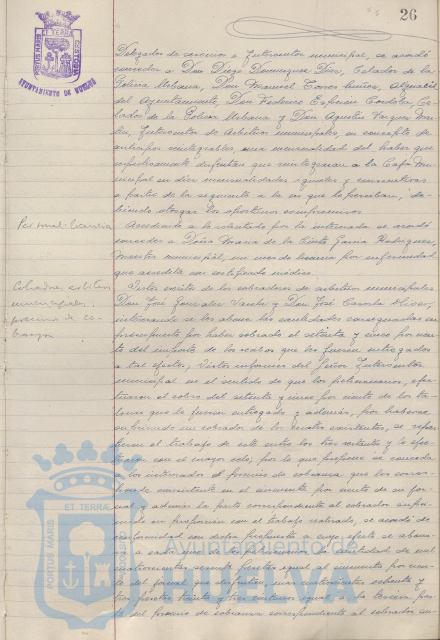 26
AYUNTAMIENTO DE HUELVA
Delegados de servicio e Interventor municipal, se acordó
conceder a Don Diego Dominguez Diaz, Celador de la
Policia Urbana, Don Manuel Torres Muñoz, Alguacil
del Ayuntamiento, Don Federico Espina Cordoba, Ce-
lador de la Policia Urbana y Don Agustin Vazquez
Interventor de Arbitrios municipales, en concepto de
anticipo reintegrable, una mensualidad del haber que
respectivamente disfrutan que reintegraran a la Caja Mu-
nicipal en diez mensualidades iguales y consecutivas
a partir de la siguiente a la en que la perciban, de-
biendo otorgar los oportunos compromisos.
Personal. Licencia
Accediendo a lo solicitado por la interesada se acordó
conceder a Doña Maria de la Cinta Garcia Rodriguez,
Maestra municipal, un mes de licencia por enfermedad
que acredita con certificado médico.
municipales,
premio de co-
branza
Visto escrito de los cobradores de arbitrios municipales
Don José Gonzalez Sanchez y Don José
interesando se les abone las cantidades consignadas en
presupuesto por haber cobrado el setenta y cinco por cien-
to del importe de los recibos que les fueron entregados
a tal efecto; Vistos informes del Señor Interventor
municipal en el sentido de que los peticionarios, efec-
tuaron el cobro del setenta y cinco por ciento de los ta-
lones que le fueron entregados y además, por haberse
suprimido un cobrador de los cuatro existentes, se
el trabajo de este entre los tres restantes y lo efec-
tuaron con el mayor celo, por lo que propone se conceda
a los interesados el premio de cobranza que les corres-
ponde consistente en el cincuenta por ciento de su jor-
nal y además la parte correspondiente al cobrador supri-
mido en proporción con el trabajo realizado, se acordó de
conformidad con dicha propuesta a cuyo efecto se abona-
rá a cada uno de los mismos la cantidad de mil
cuatrocientas sesenta pesetas igual al cincuenta por cien-
to del jornal que disfrutan, mas cuatrocientas ochenta y
tres pesetas treinta y tres centimos igual a la tercera par-
te del premio de cobranza correspondiente al cobrador su-
PORTUS MARIS
ET TERRAE
Ayuntamiento de
HUELVA